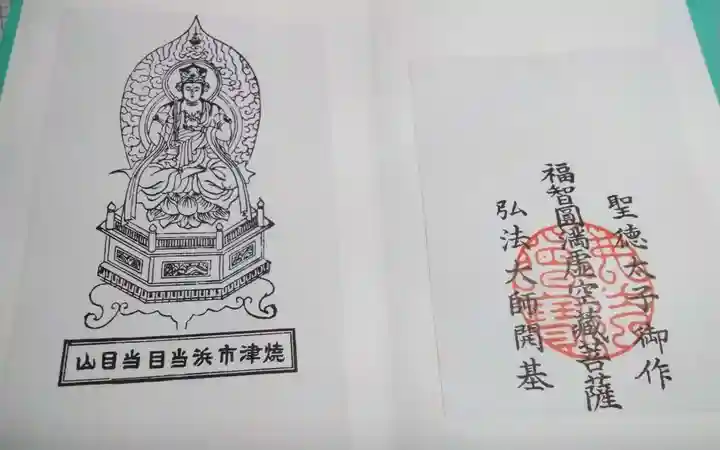 山目当目当浜市津焼
聖徳太子御作
福智圓満虚空蔵菩薩
弘法大師開基